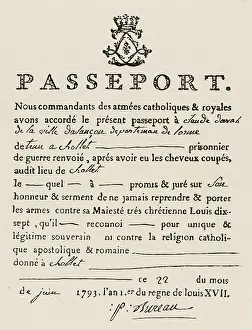 PASSEPORT.
Nous commandants des armées catholiques & royales
avons accordé le présent passeport à
de la ville
prisonnier
de guerre renvoié, après avoir eu les cheveux coupés,
audit lieu de Chollet
le — quel — à — promis & juré sur Son
honneur & serment de ne jamais reprendre & porter
les armes contre sa Majesté très chrétienne Louis dix-
sept, qu'il — reconnoi — pour unique &
légitime souverain ni contre la religion catholi-
que apostolique & romaine
donné à Chollet
ce 22 du mois
de juin 1793. l'an 1.er du regne de louis XVII.